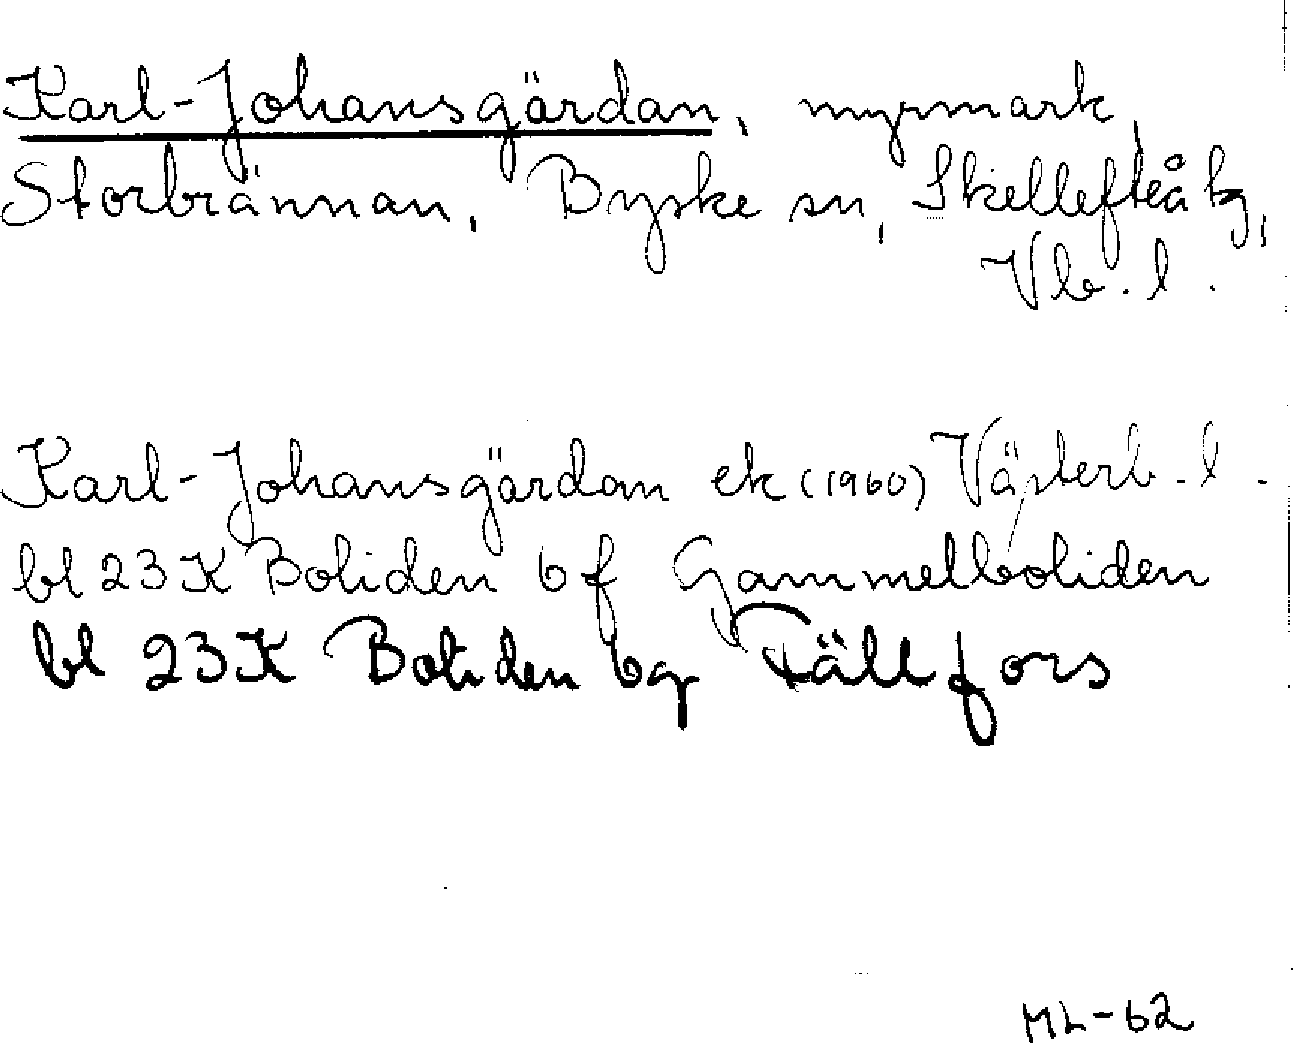 Karl-Johansgärdan, myrmark,
Storbrännan, Byske sn, Skellefteå tg,
Vb. l.
Karl-Johansgärdan ek (1960) Västerb. l.
bl 23 K Boliden 6 f Gammelboliden
bl 23 K Boliden 6g Fällfors
ML-62